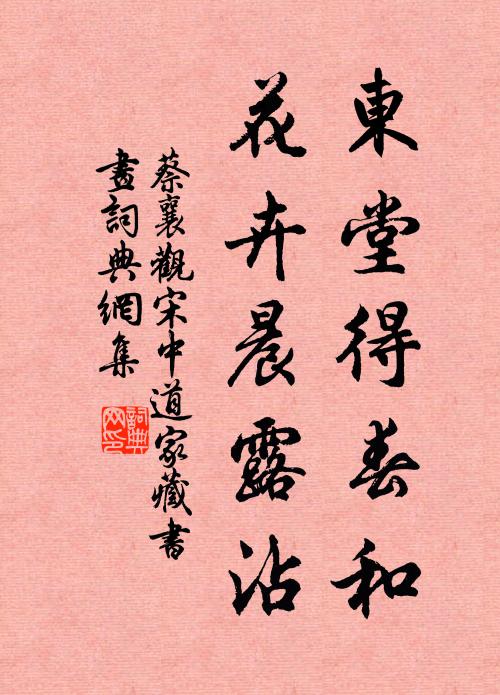 東堂得春和
花卉晨露沾
蔡襄觀宋中道家藏書
畫詞典網集
詞典网印